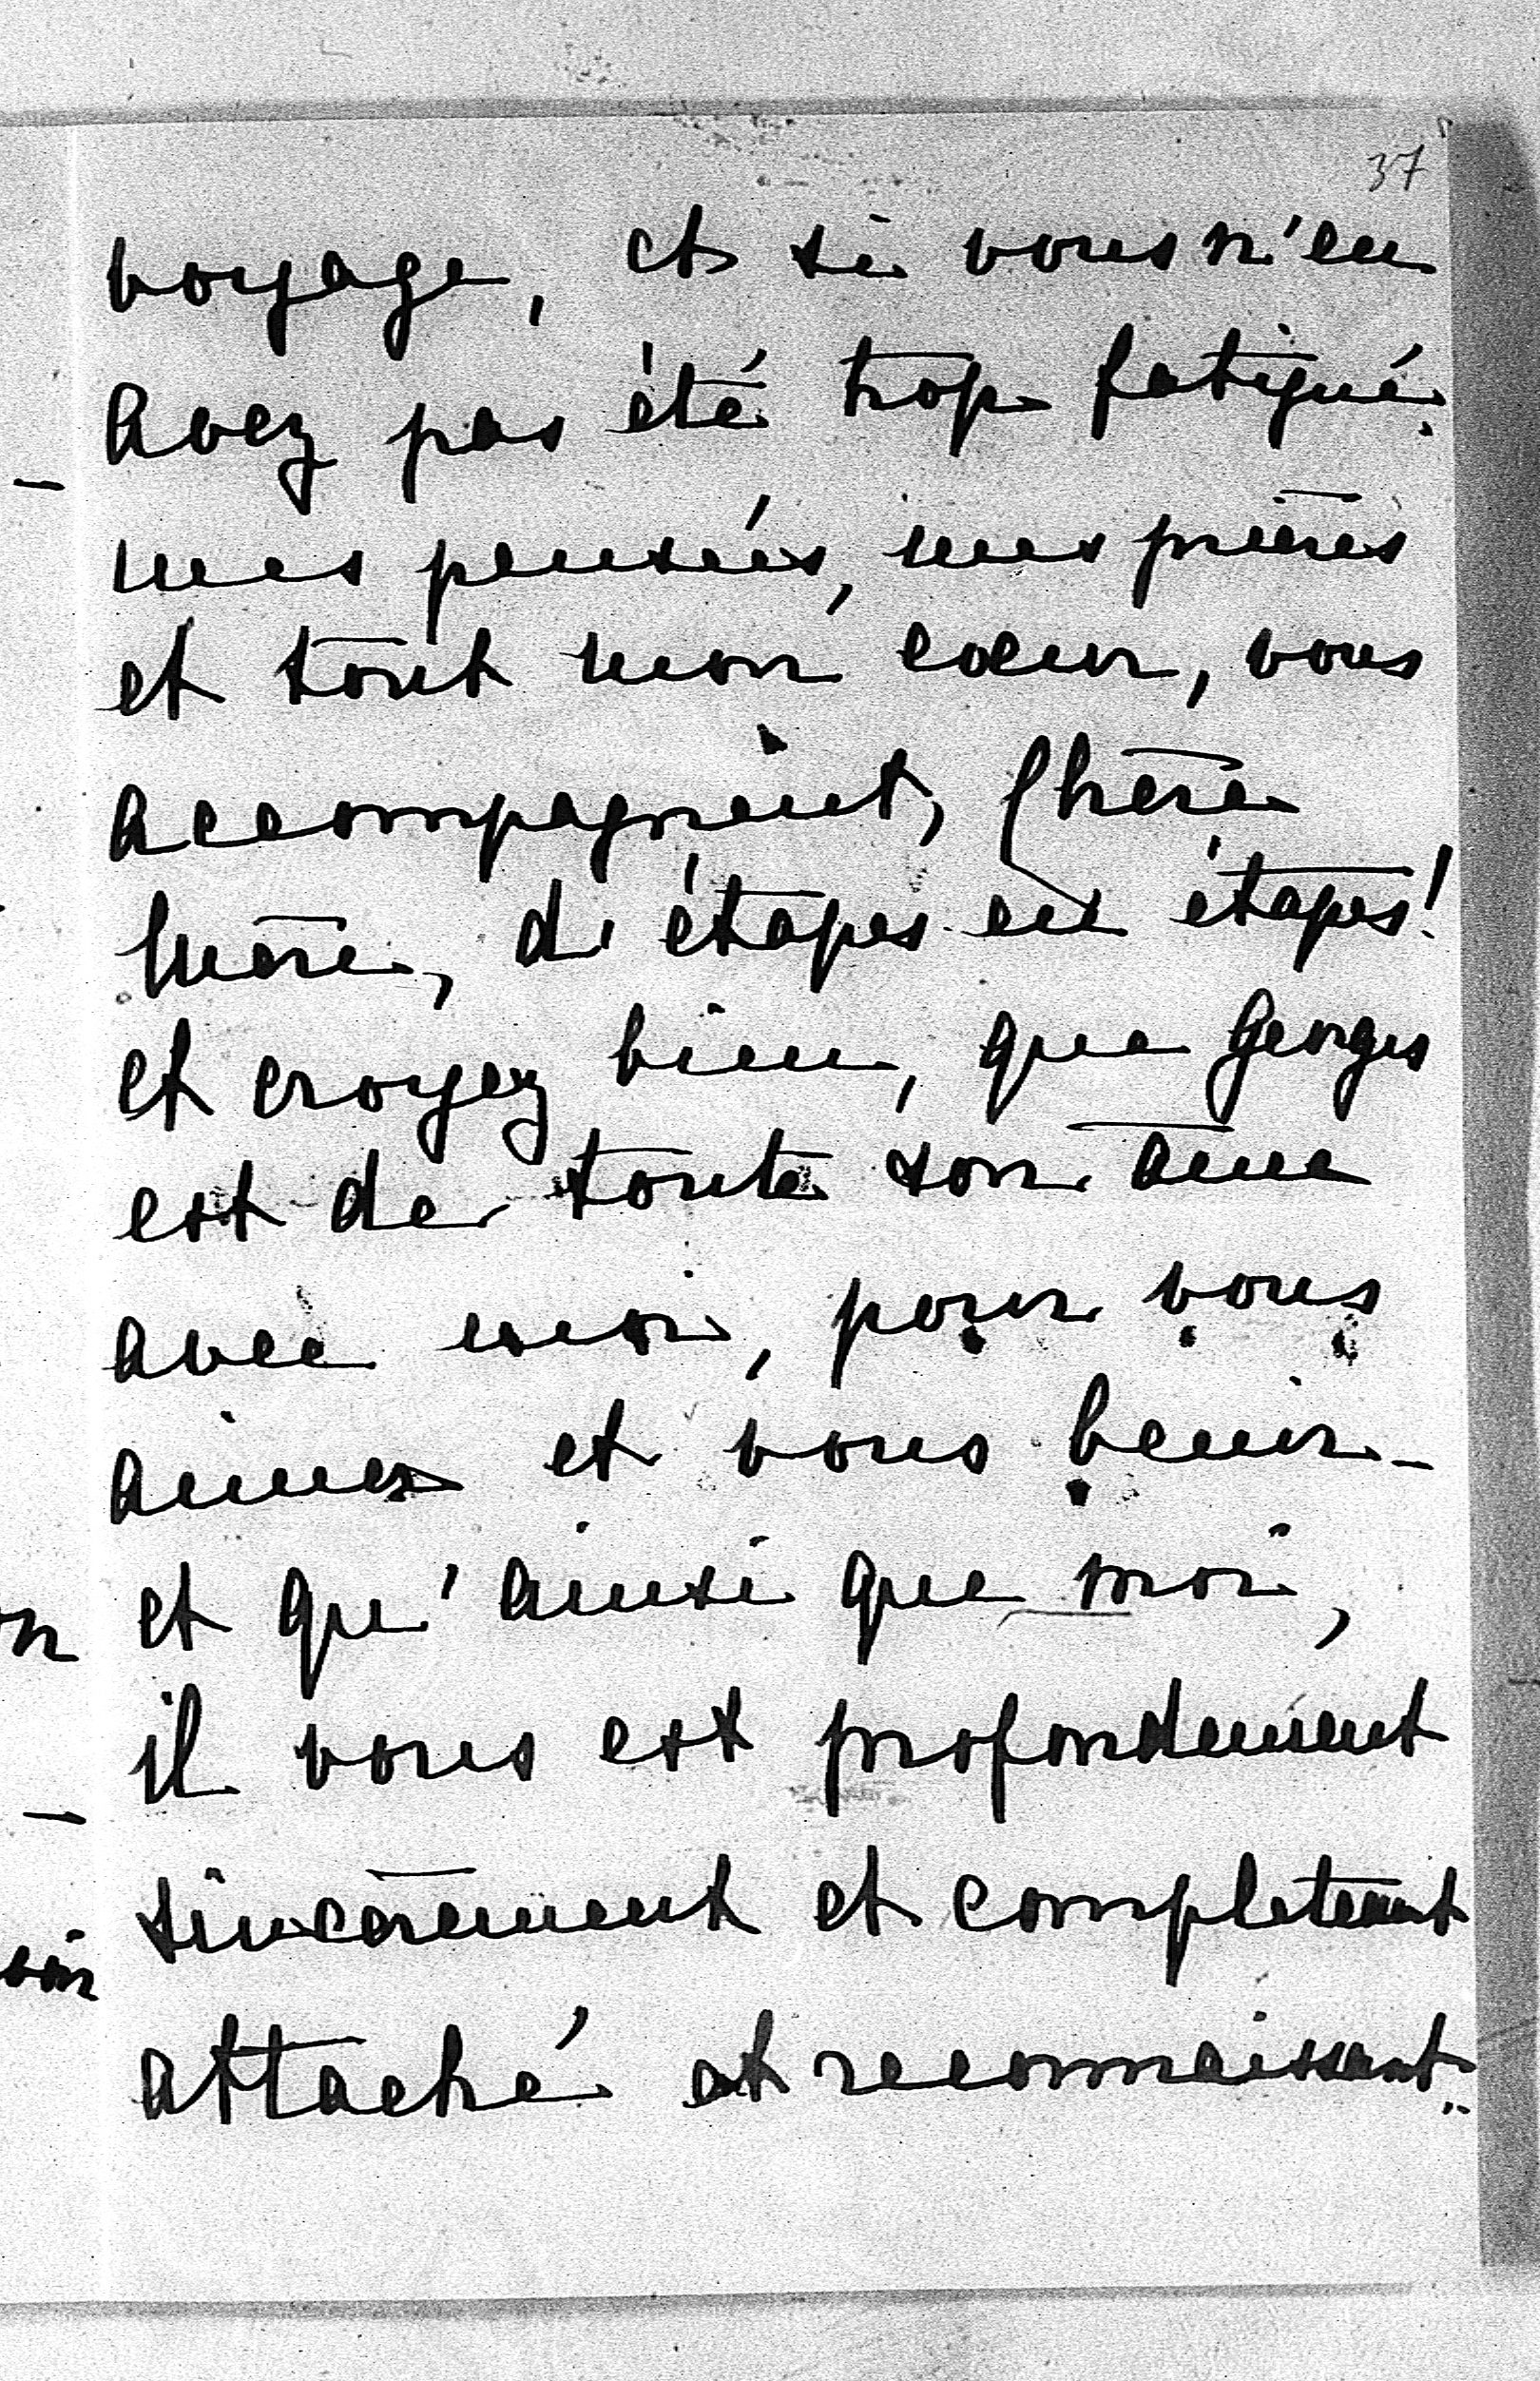 37
voyage, et si vous n'en
avez pas été trop fatigué.
mes pensées, mes prières
et tout mon coeur, vous
accompagnent, Chère
Mère, d'étapes en étapes!
et croyez bien, que Georges
est de toute son âme
avec moi, pour vous
aimer et vous benir_
et qu'ainsi que moi,
il vous est profondement
sincèrement et completement
attaché et reconnaissant..